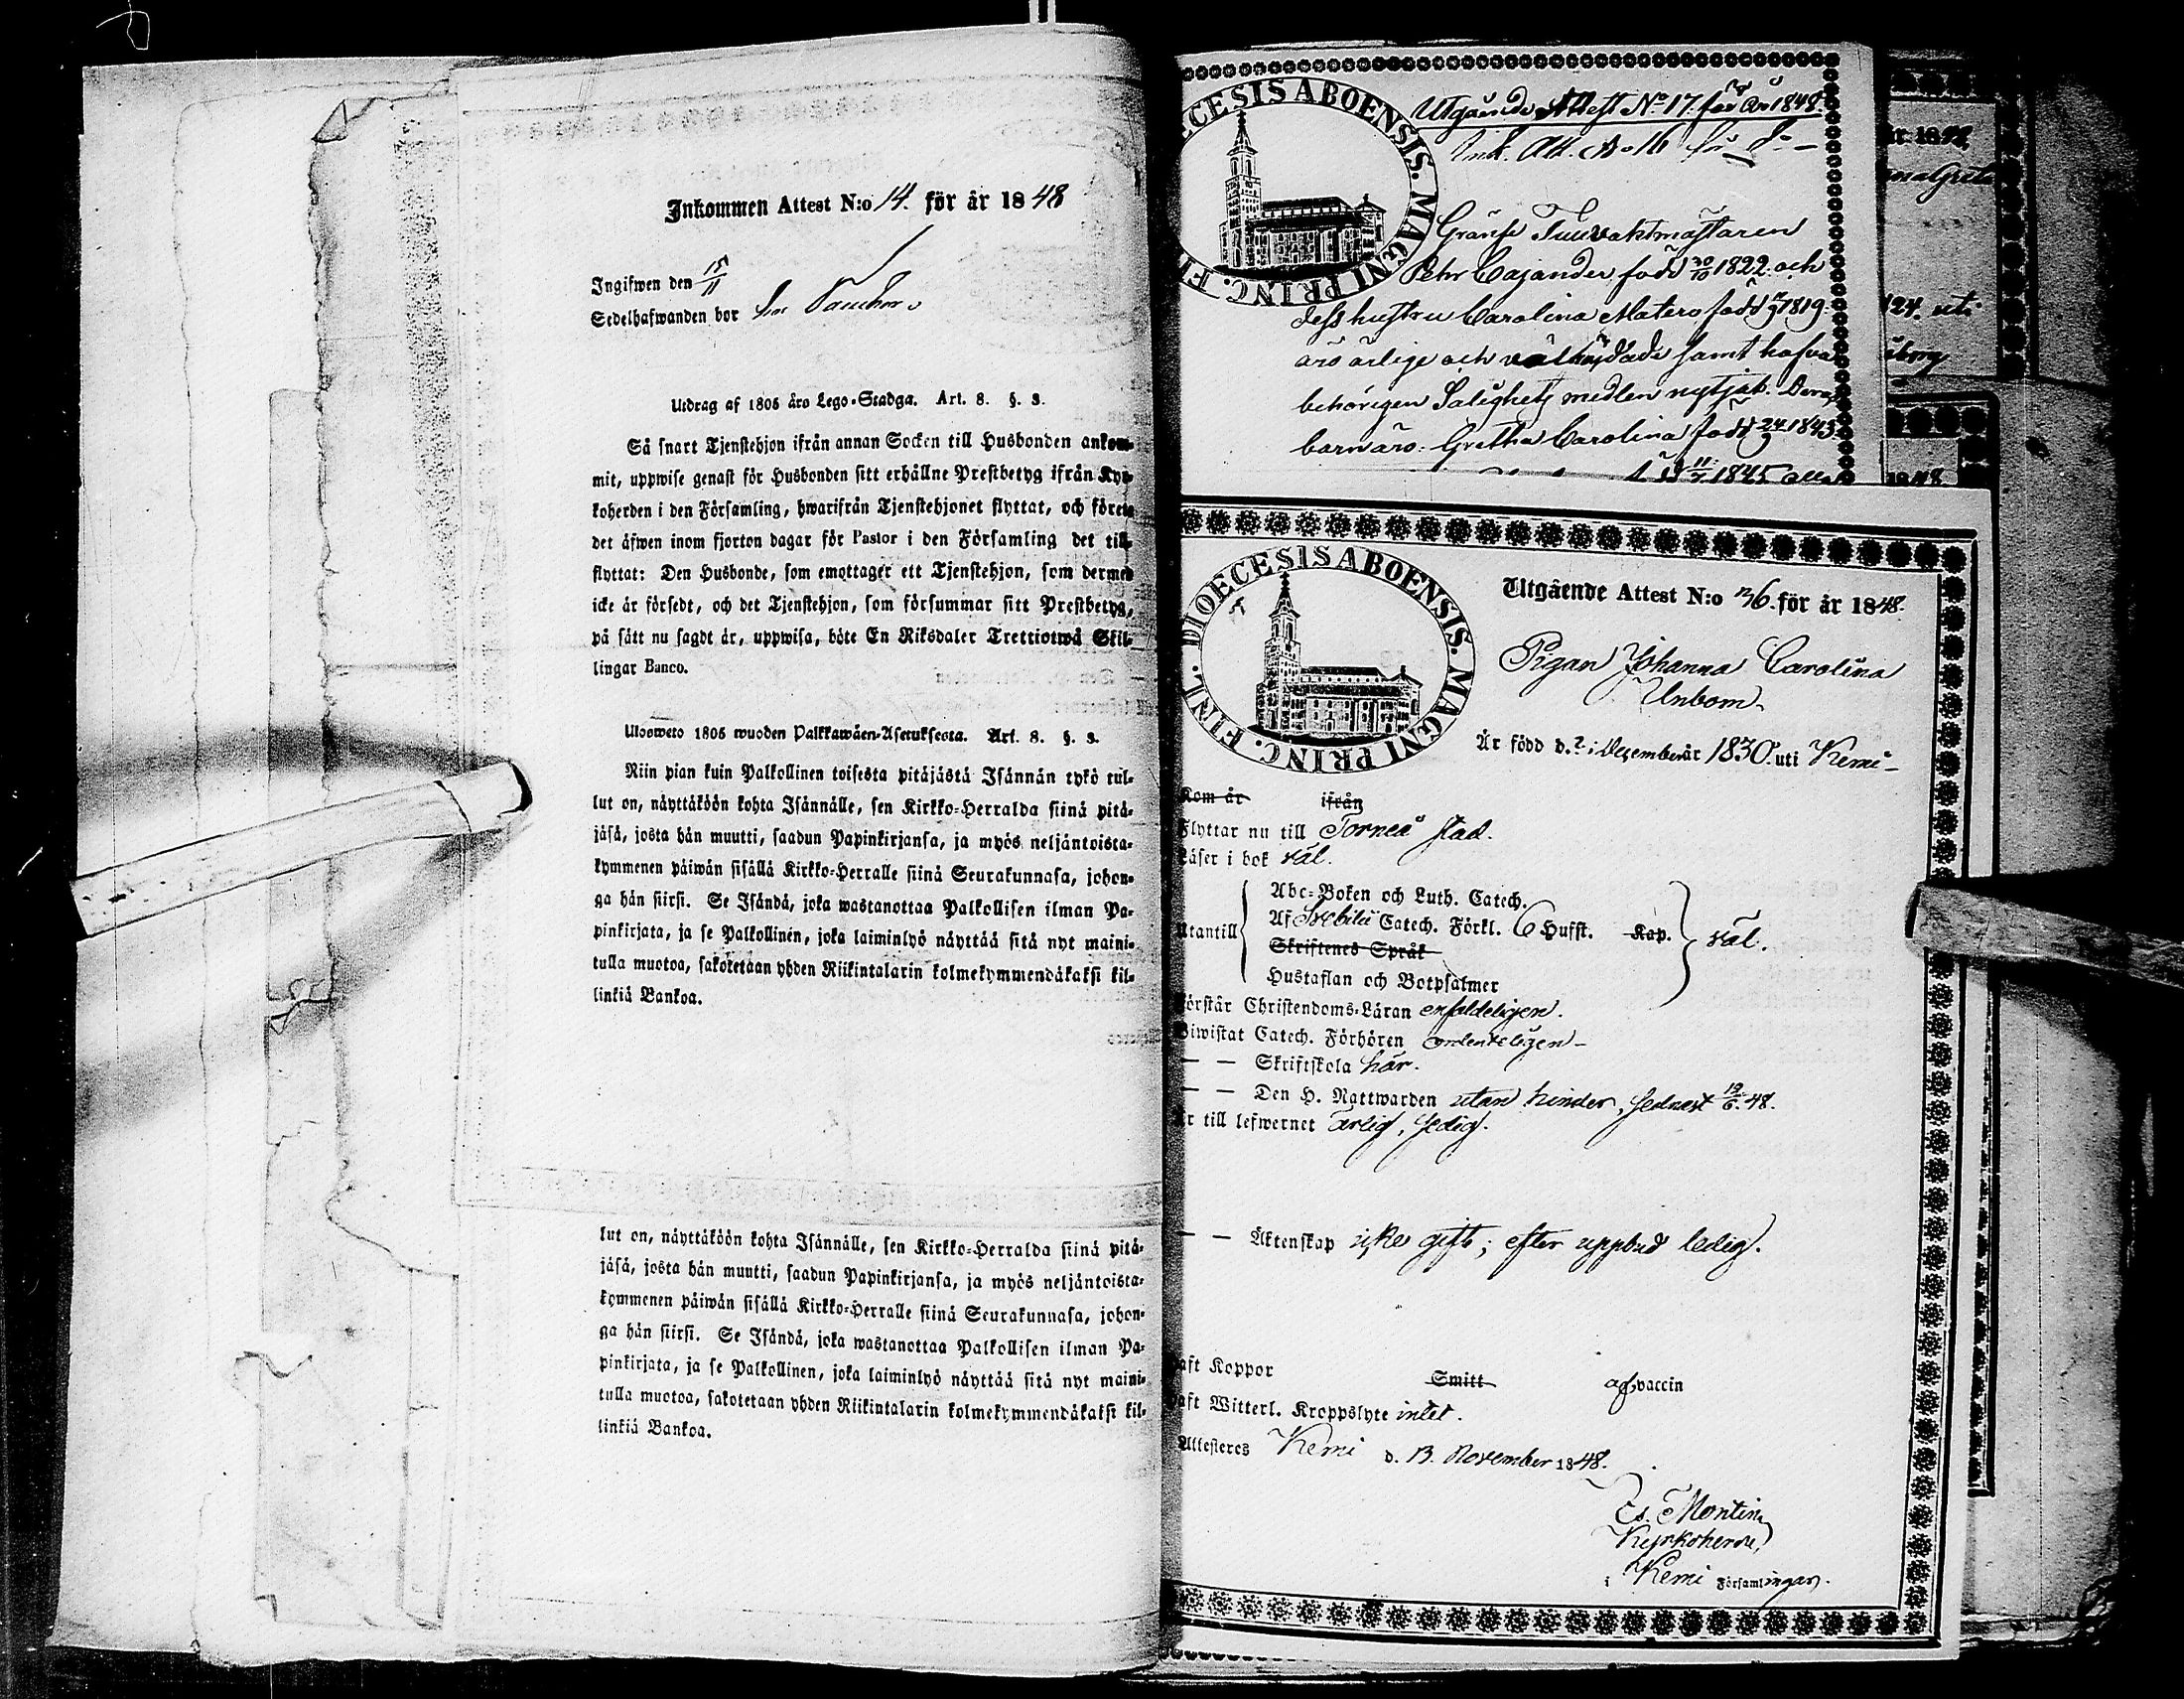 Inkommen Attest N:o 14. för år 1848
Ingifwen den 15/11
Sedelhafwanden bor
Utdrag af 1805 års Lego-Stadga. Art. 8. §. 3.
Så snart Tjenstehjon ifrån annan Socken till Husbonden ankom-
mit, uppwise genast för Husbonden sitt erhållne Prestbetyg ifrån Kyr-
koherden i den Församling, hwarifrån Tjenstehjonet flyttat, och förete
det äfwen inom fjorton dagar för Pastor i den Församling det till-
flyttat: Den Husbonde, som emottager ett Tjenstehjon, som dermed
icke är försedt, och det Tjenstehjon, som försummar sitt Prestbetyg,
på sätt nu sagdt är, uppwisa, böte En Riksdaler Trettiotwå Skil-
lingar Banco.
Ulosweto 1805 wuoden Palkkawäen-Asetuksesta. Art. 8. §. 3.
Niin pian kuin Palkollinen toisesta pitäjästä Isännän tykö tul-
lut on, näyttäköön kohta Isännälle, sen Kirkko-Herralda siinä pitä-
jäsä, josta hän muutti, saadun Papinkirjansa, ja myös neljäntoista-
kymmenen päiwän sisällä Kirkko-Herralle siinä Seurakunnasa, johon-
ga hän siirsi. Se Isändä, joka wastanottaa Palkollisen ilman Pa-
pinkirjata, ja se Palkollinen, joka laiminlyö näyttää sitä nyt maini-
tulla muotoa, sakotetaan yhden Riikintalarin kolmekymmendäkaksi kil-
linkiä Bankoa.
lut on, näyttäköön kohta Isännälle, sen Kirkko-Herralda siinä pitä-
jäsä, josta hän muutti, saadun Papinkirjansa, ja myös neljäntoista-
kymmenen päiwän sisällä Kirkko-Herralle siinä Seurakunnasa, johon-
ga hän siirsi. Se Isändä, joka wastanottaa Palkollisen ilman Pa-
pinkirjata, ja se Palkollinen, joka laiminlyö näyttää sitä nyt maini-
tulla muotoa, sakotetaan yhden Riikintalarin kolmekymmendäkaksi kil-
linkiä Bankoa.
DIOECESIS ABOENSIS. MAGNI PRINC. FINL.
Utgående Attest No 17. för år 1848.
Ink. Att. No 16
Gräns Tullvaktmästaren
Pehr Cajander född 30/10 1822. och
dess hustru Carolina Matero född 1819.
äro ärlige och välfrejdade samt hafva
behörigen Salighets medlen nyttjat. Deras
barn äro: Gretha Carolina född 24/9 1843.
1845
DIOECESIS ABOENSIS. MAGNI PRINC. FINL.
Utgående Attest N:o 136. för år 1848.
Pigan Johanna Carolina
Unbom
Är född d. ? i December år 1830. uti Kemi
Kom år ifrån
Flyttar nu till Torneå stad.
Läser i bok väl.
Abc-Boken och Luth. Catech.
Utantill Af Svebilii Catech. Förkl. 6 Hufst. Kap. väl.
Skriftenes Språk
Hustaflan och Botpsalmer
Förstår Christendoms-Läran enfaldeligen.
Biwistat Catech. Förhören ordenteligen
— — Skriftskola här.
— — Den H. Nattwarden utan hinder, sednast 19/6 48.
Är till lefwernet ärlig, sedig.
— — Äktenskap icke gift; efter uppbud ledig.
Haft Koppor Smitt af vaccin
Haft Witterl. Kroppslyte intet.
Attesteres Kemi d. 13. November 1848.
Es. Montin
Kyrkoherde
i Kemi Församlingar.